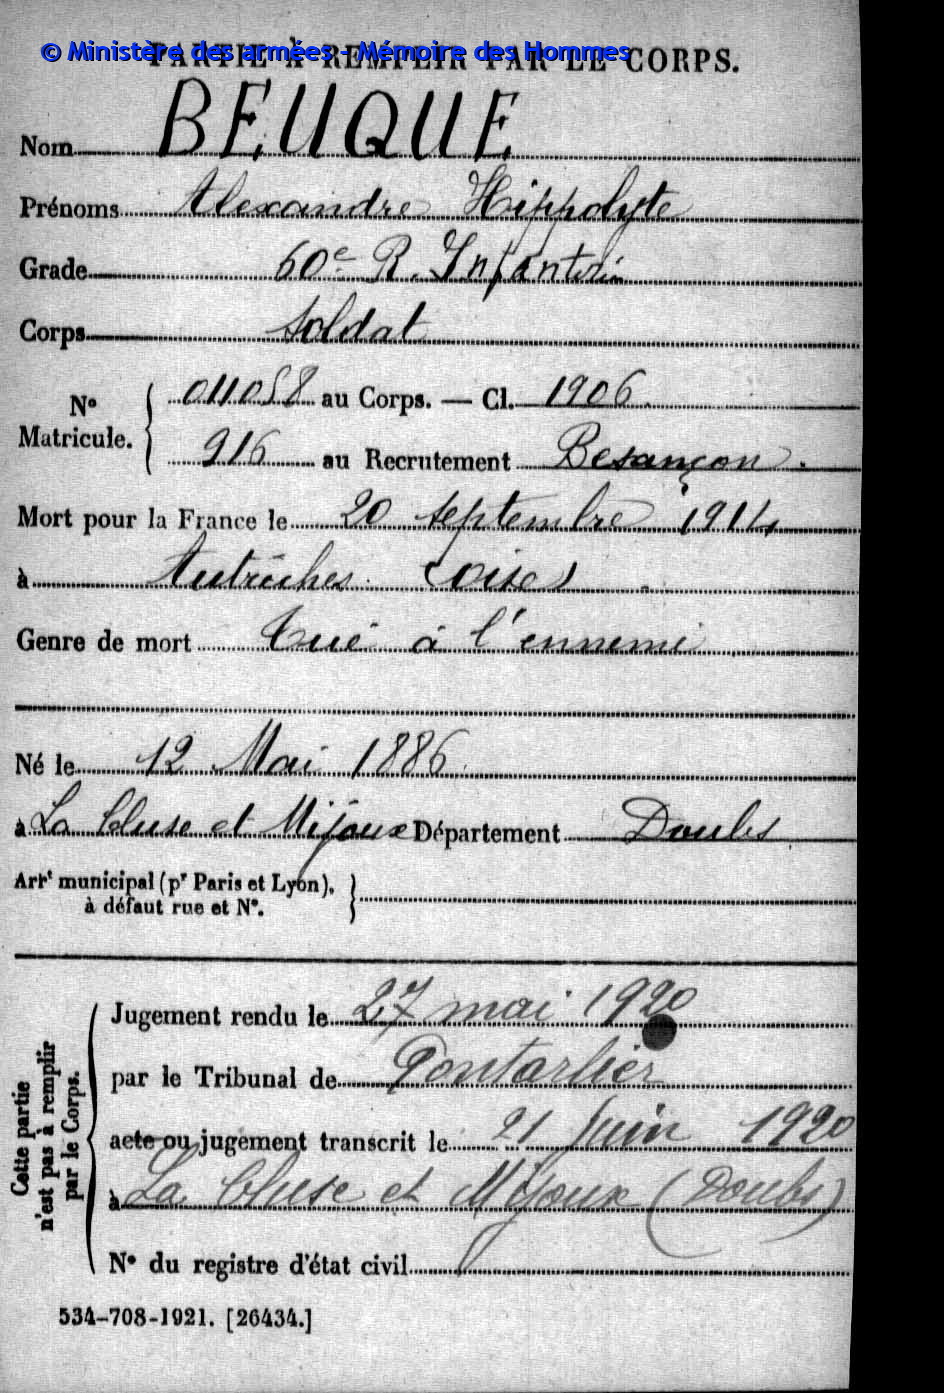 © Ministère des armées - Mémoire des Hommes
PARTIE À REMPLIR PAR LE CORPS.
Nom BEUQUE
Prénoms Alexandre Hippolyte
Grade 60e R. Infanterie
Corps Soldat
No Matricule. { 011058 au Corps. — Cl. 1906.
916 au Recrutement Besançon.
Mort pour la France le 20 septembre 1914
à Autrèches (Oise)
Genre de mort Tué à l'ennemi
Né le 12 Mai 1886
à La Cluse et Mijoux Département Doubs
Arrt municipal (pr Paris et Lyon), }
à défaut rue et No.
Cette partie
n'est pas à remplir
par le Corps.
Jugement rendu le 27 mai 1920
par le Tribunal de Pontarlier
acte ou jugement transcrit le 21 Juin 1920
à La Cluse et Mijoux (Doubs)
No du registre d'état civil
534-708-1921. [26434.]